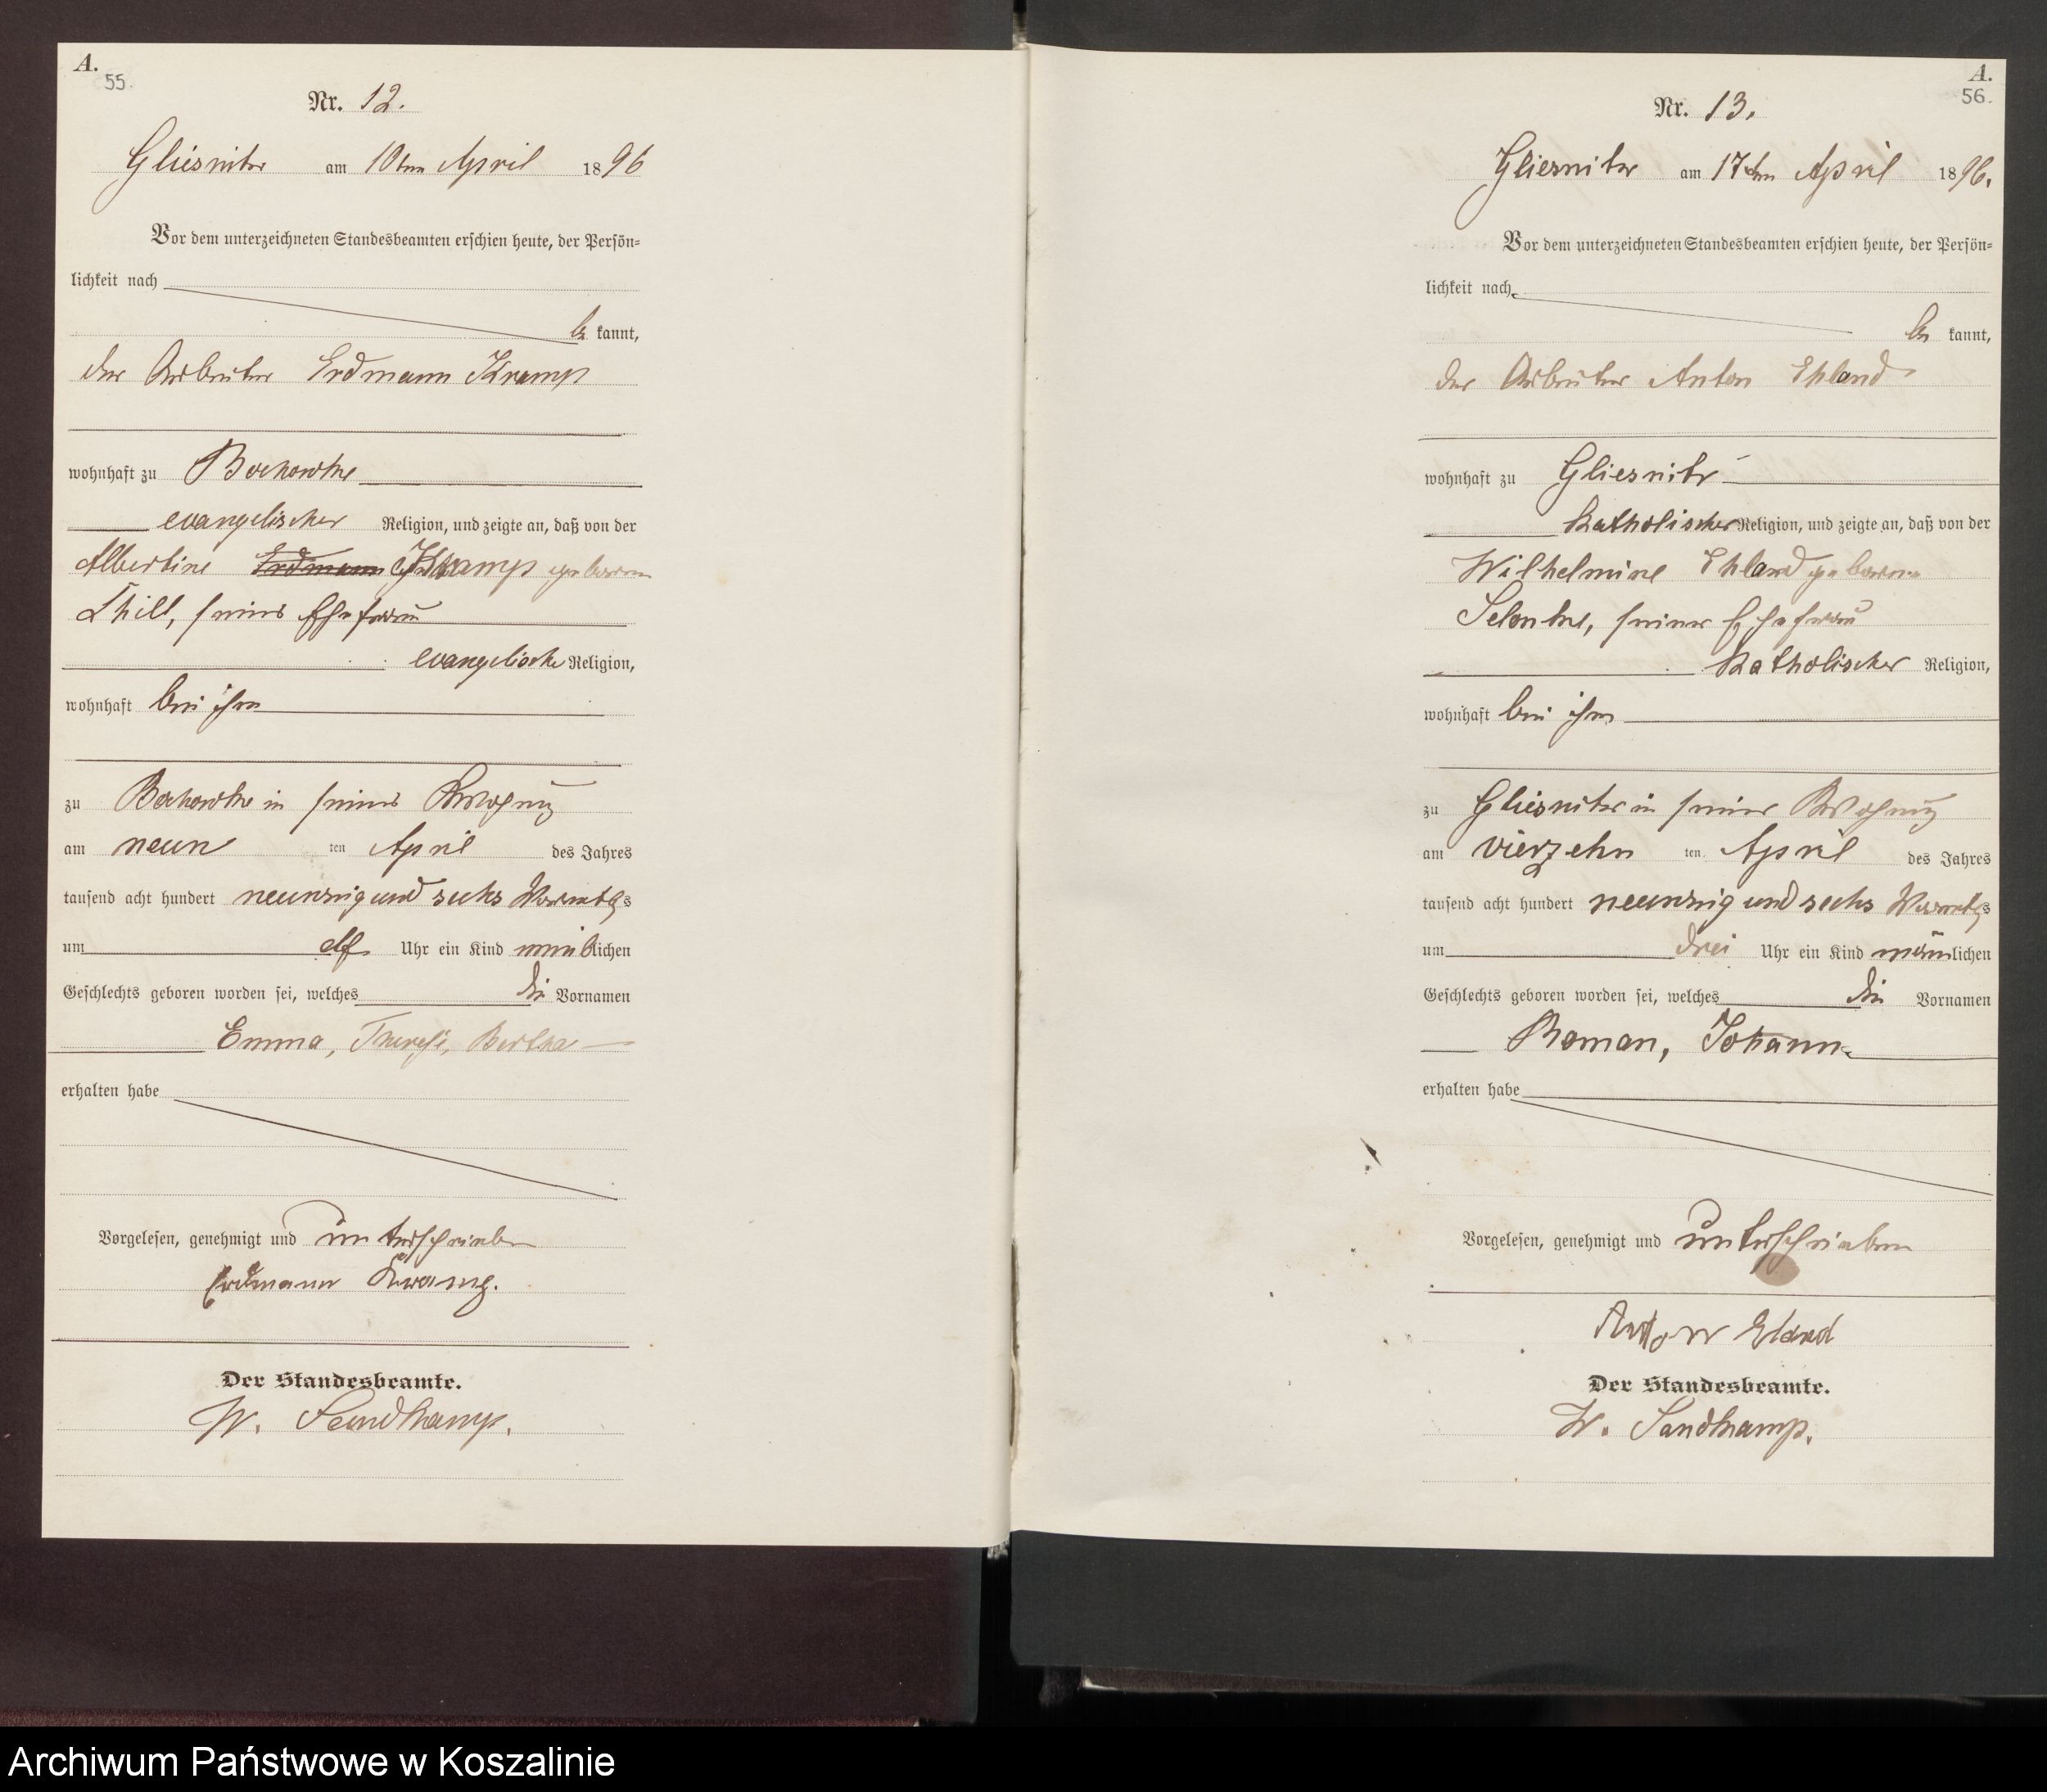 A.
55.
Nr. 12.
Gliesnitz am 10ten April 1896
Vor dem unterzeichneten Standesbeamten erschien heute, der Persön=
lichkeit nach
be kannt,
der Arbeiter Erdmann Kramp
wohnhaft zu
evangelischer Religion, und zeigte an, daß von der
Albertine Erdmann Kramp geborene
seiner Ehefrau
evangelische Religion,
wohnhaft bei ihm
zu in seiner Wohnung
am neun ten April des Jahres
tausend acht hundert neunzig und sechs Vormittags
um elf Uhr ein Kind weiblichen
Geschlechts geboren worden sei, welches die Vornamen
Emma, Therese, Bertha
erhalten habe
Vorgelesen, genehmigt und unterschrieben
Erdmann Kramp.
Der Standesbeamte.
W. Sandkamp.
A.
56.
Nr. 13.
Gliesnitz am 17ten April 1896.
Vor dem unterzeichneten Standesbeamten erschien heute, der Persön=
lichkeit nach
be kannt,
der Arbeiter Anton Ehland
wohnhaft zu Gliesnitz
katholischer Religion, und zeigte an, daß von der
Wilhelmine Ehland geborene
seiner Ehefrau
katholischer Religion,
wohnhaft bei ihm
zu Gliesnitz in seiner Wohnung
am vierzehn ten April des Jahres
tausend acht hundert neunzig und sechs Vormittags
um drei Uhr ein Kind männlichen
Geschlechts geboren worden sei, welches die Vornamen
Roman, Johann
erhalten habe
Vorgelesen, genehmigt und unterschrieben
Anton Eland
Der Standesbeamte.
W. Sandkamp.
Archiwum Państwowe w Koszalinie